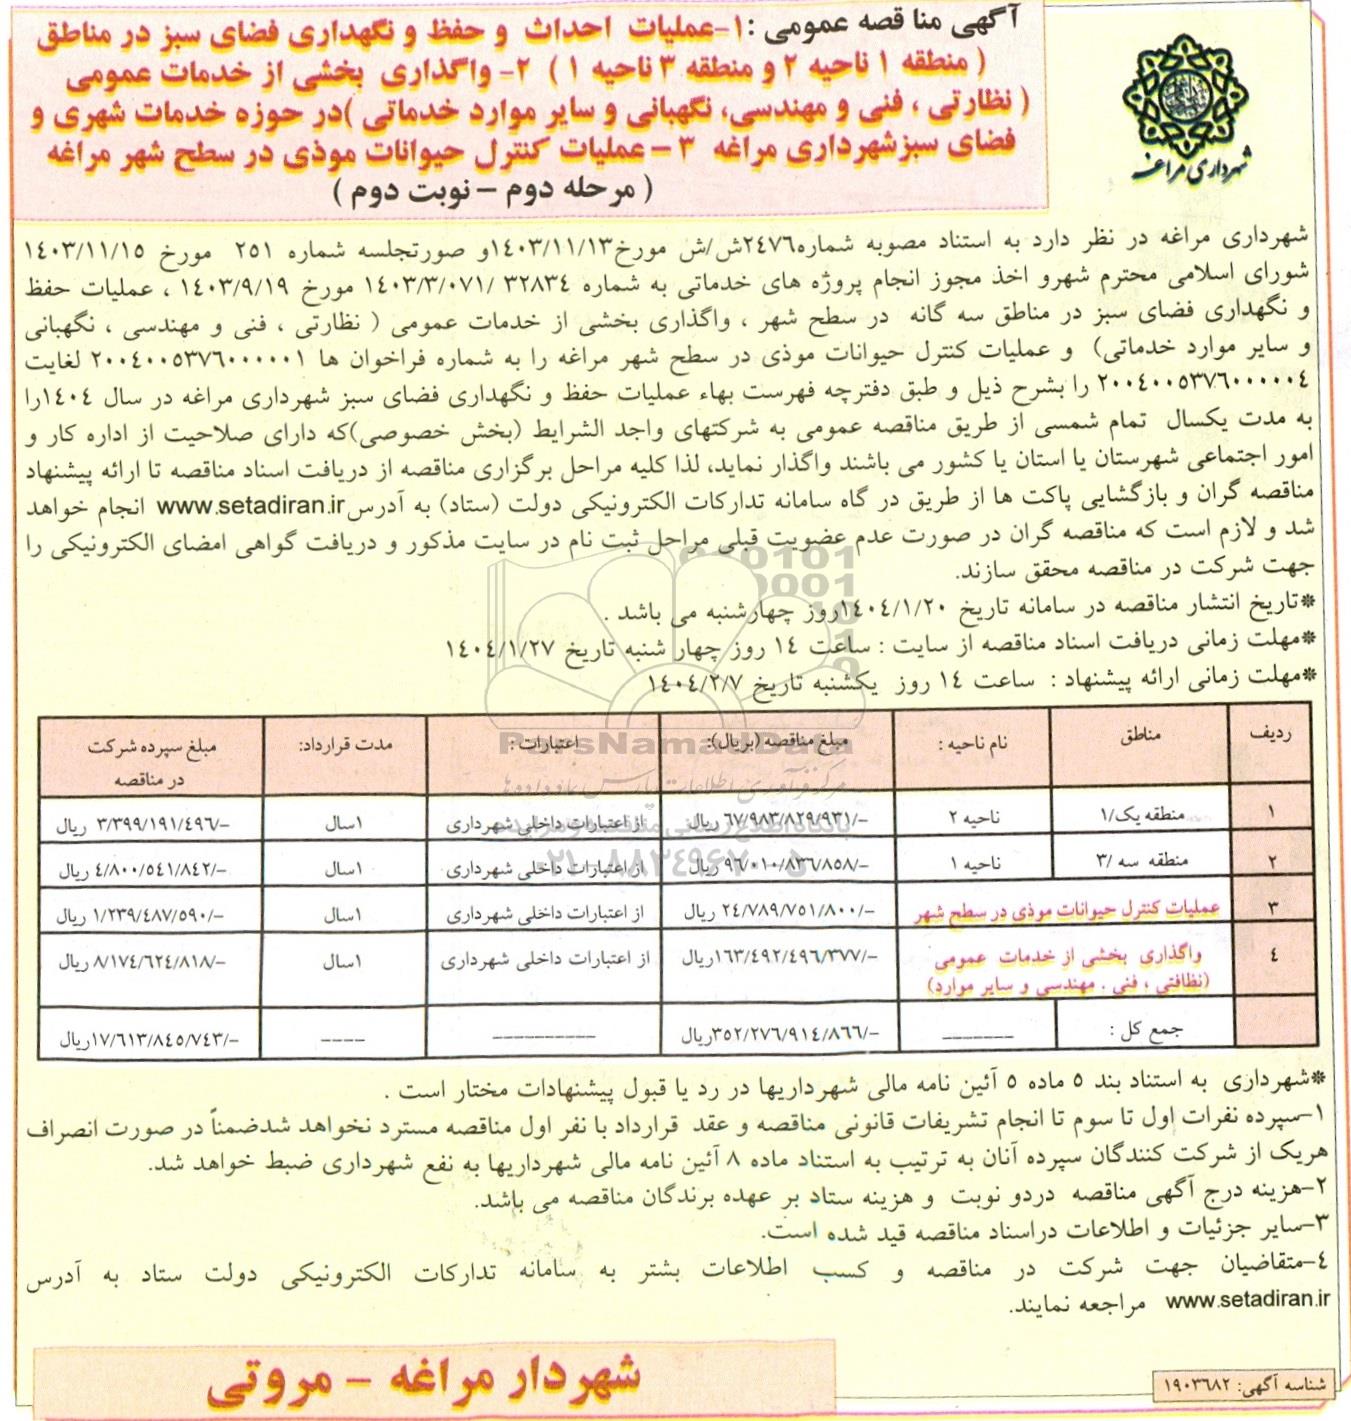 آگهی مناقصه عمومی :۱-عملیات احداث و حفظ و نگهداری فضای سبز در مناطق
( منطقه ۱ ناحیه ۲ و منطقه ۳ ناحیه ۱ ) ۲- واگذاری بخشی از خدمات عمومی
( نظارتی ، فنی و مهندسی، نگهبانی و سایر موارد خدماتی )در حوزه خدمات شهری و
فضای سبزشهرداری مراغه ۳ – عملیات کنترل حیوانات موذی در سطح شهر مراغه
( مرحله دوم – نوبت دوم )
شهرداری مراغه
شهرداری مراغه در نظر دارد به استناد مصوبه شماره۲٤۷٦ش/ش مورخ۱٤۰۳/۱۱/۱۳و صورتجلسه شماره ۲۵۱ مورخ ۱٤۰۳/۱۱/۱۵
شورای اسلامی محترم شهرو اخذ مجوز انجام پروژه های خدماتی به شماره ۳۲۸۳٤ /۱٤۰۳/۳/۰۷۱ مورخ ۱٤۰۳/۹/۱۹ ، عملیات حفظ
و نگهداری فضای سبز در مناطق سه گانه در سطح شهر ، واگذاری بخشی از خدمات عمومی ( نظارتی ، فنی و مهندسی ، نگهبانی
و سایر موارد خدماتی) و عملیات کنترل حیوانات موذی در سطح شهر مراغه را به شماره فراخوان ها ۲۰۰٤۰۰۵۳۷٦۰۰۰۰۰۱ لغایت
۲۰۰٤۰۰۵۳۷٦۰۰۰۰۰٤ را بشرح ذیل و طبق دفترچه فهرست بهاء عملیات حفظ و نگهداری فضای سبز شهرداری مراغه در سال ۱٤۰٤را
به مدت یکسال تمام شمسی از طریق مناقصه عمومی به شرکتهای واجد الشرایط (بخش خصوصی)که دارای صلاحیت از اداره کار و
امور اجتماعی شهرستان یا استان یا کشور می باشند واگذار نماید، لذا کلیه مراحل برگزاری مناقصه از دریافت اسناد مناقصه تا ارائه پیشنهاد
مناقصه گران و بازگشایی پاکت ها از طریق در گاه سامانه تدارکات الکترونیکی دولت (ستاد) به آدرس www.setadiran.ir انجام خواهد
شد و لازم است که مناقصه گران در صورت عدم عضویت قبلی مراحل ثبت نام در سایت مذکور و دریافت گواهی امضای الکترونیکی را
جهت شرکت در مناقصه محقق سازند.
*تاریخ انتشار مناقصه در سامانه تاریخ ۱٤۰٤/۱/۲۰روز چهارشنبه می باشد .
*مهلت زمانی دریافت اسناد مناقصه از سایت : ساعت ۱٤ روز چهار شنبه تاریخ ۱٤۰٤/۱/۲۷
*مهلت زمانی ارائه پیشنهاد : ساعت ۱٤ روز یکشنبه تاریخ ۱٤۰٤/۲/۷
ParsNamadData
ردیف مناطق نام ناحیه : مبلغ مناقصه (بریال): اعتبارات : مدت قرارداد: مبلغ سپرده شرکت
در مناقصه
۱ منطقه یک/۱ ناحیه ۲ ٦۷/۹۸۳/۸۲۹/۹۳۱/- ریال از اعتبارات داخلی شهرداری ۱سال ۳/۳۹۹/۱۹۱/٤۹٦/- ریال
۲ منطقه سه /۳ ناحیه ۱ ۹٦/۰۱۰/۸۳٦/۸۵۸/- ریال از اعتبارات داخلی شهرداری ۱سال ٤/۸۰۰/۵٤۱/۸٤۲/- ریال
۳ عملیات کنترل حیوانات موذی در سطح شهر ۲٤/۷۸۹/۷۵۱/۸۰۰/- ریال از اعتبارات داخلی شهرداری ۱سال ۱/۲۳۹/٤۸۷/۵۹۰/- ریال
٤ واگذاری بخشی از خدمات عمومی ۱٦۳/٤۹۲/٤۹٦/۳۷۷/-ریال از اعتبارات داخلی شهرداری ۱سال ۸/۱۷٤/٦۲٤/۸۱۸/- ریال
(نظافتی ، فنی . مهندسی و سایر موارد)
جمع کل : ------- ۳۵۲/۲۷٦/۹۱٤/۸٦٦/-ریال ---------- ---- ۱۷/٦۱۳/۸٤۵/۷٤۳/-ریال
*شهرداری به استناد بند ۵ ماده ۵ آئین نامه مالی شهرداریها در رد یا قبول پیشنهادات مختار است .
۱–سپرده نفرات اول تا سوم تا انجام تشریفات قانونی مناقصه و عقد قرارداد با نفر اول مناقصه مسترد نخواهد شدضمناً در صورت انصراف
هریک از شرکت کنندگان سپرده آنان به ترتیب به استناد ماده ۸ آئین نامه مالی شهرداریها به نفع شهرداری ضبط خواهد شد.
۲–هزینه درج آگهی مناقصه دردو نوبت و هزینه ستاد بر عهده برندگان مناقصه می باشد.
۳–سایر جزئیات و اطلاعات دراسناد مناقصه قید شده است.
٤–متقاضیان جهت شرکت در مناقصه و کسب اطلاعات بشتر به سامانه تدارکات الکترونیکی دولت ستاد به آدرس
www.setadiran.ir مراجعه نمایند.
شهردار مراغه – مروتی
شناسه آگهی: ۱۹۰۳٦۸۲